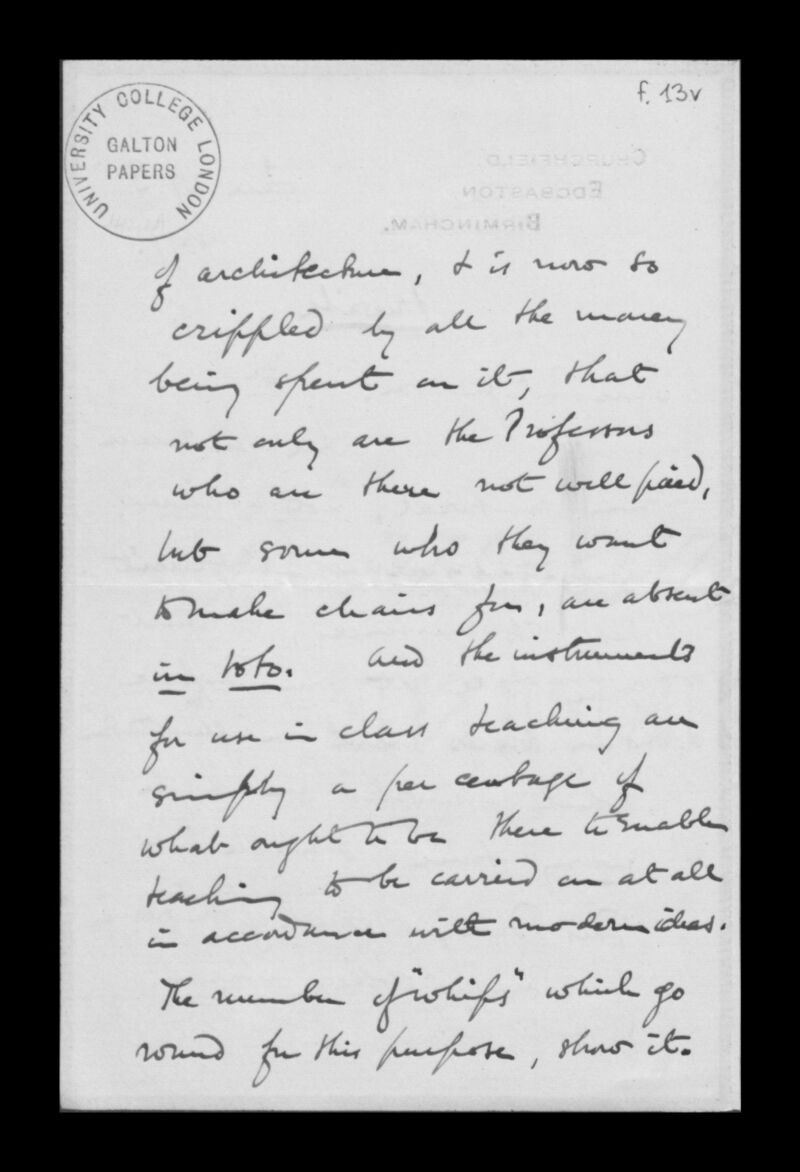 f. 13v
UNIVERSITY COLLEGE LONDON
GALTON
PAPERS
CHURCHFIELD.
EDGBASTON
BIRMINGHAM.
of architecture, & is now so
crippled by all the money
being spent on it, that
not only are the Professors
who are there not well paid,
but some who they want
to make chairs for, are absent
in toto. and the instruments
for use in class teaching are
simply a per centage of
what ought to be there to enable
teaching to be carried on at all
in accordance with modern ideas.
The number of "whips" which go
round for this purpose, show it.